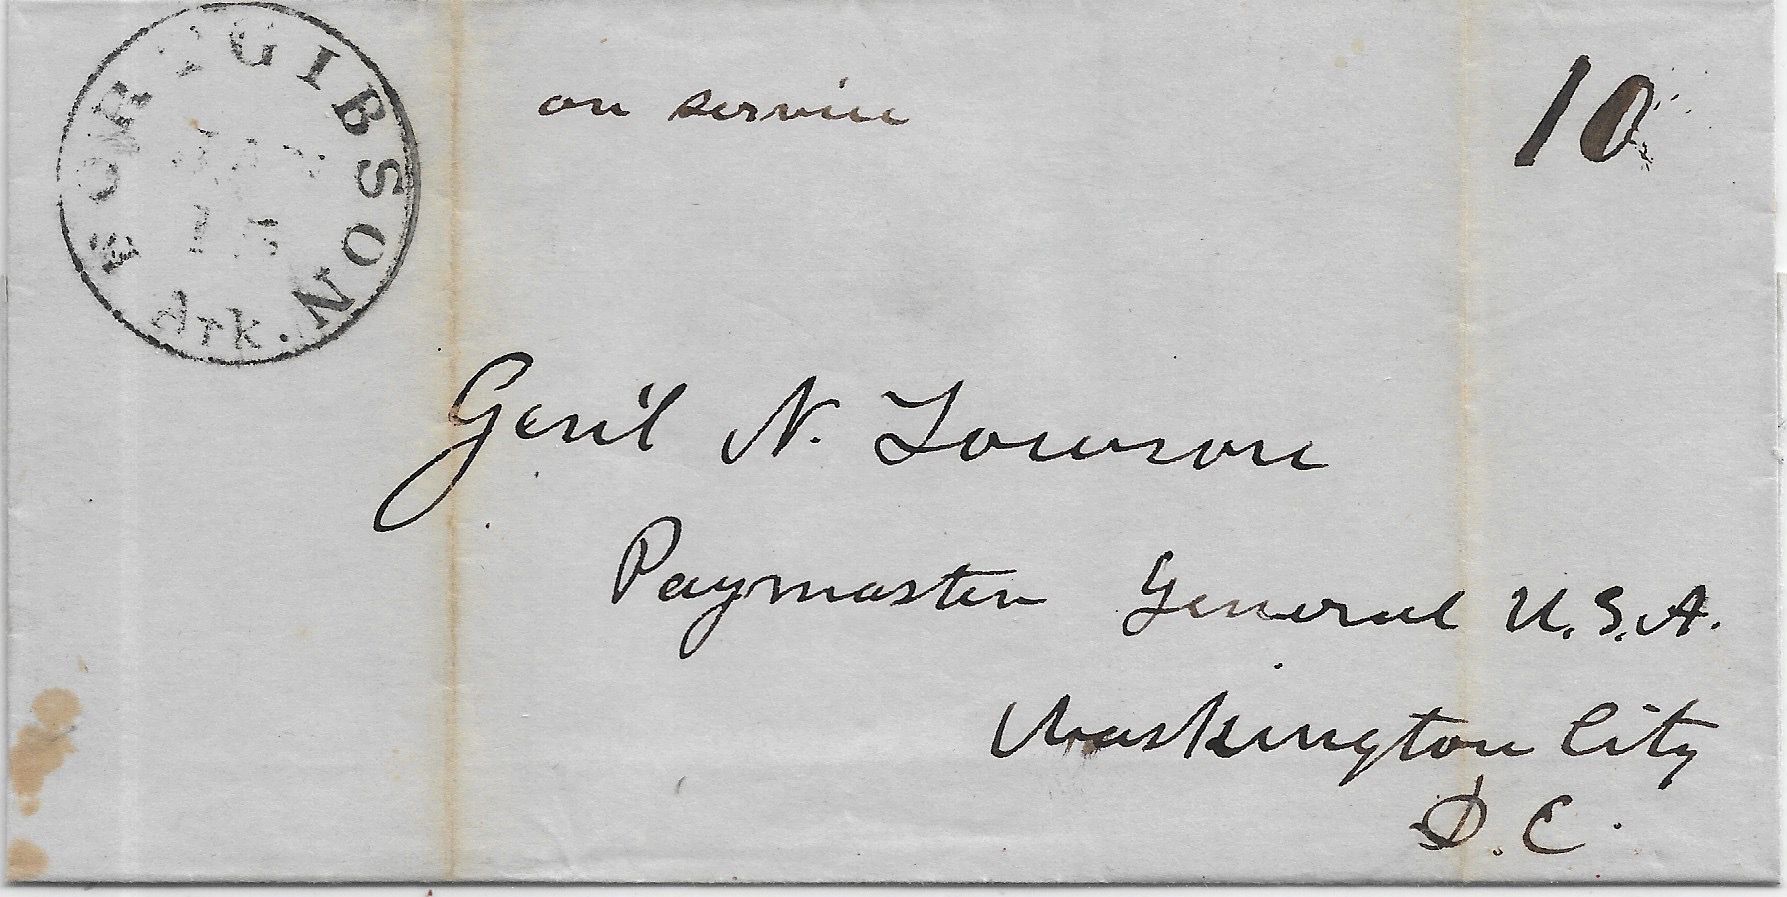 FORT GIBSON
JAN
Ark.
on service
10
Gen'l N. Towson
Paymaster General U.S.A.
Washington City
D.C.